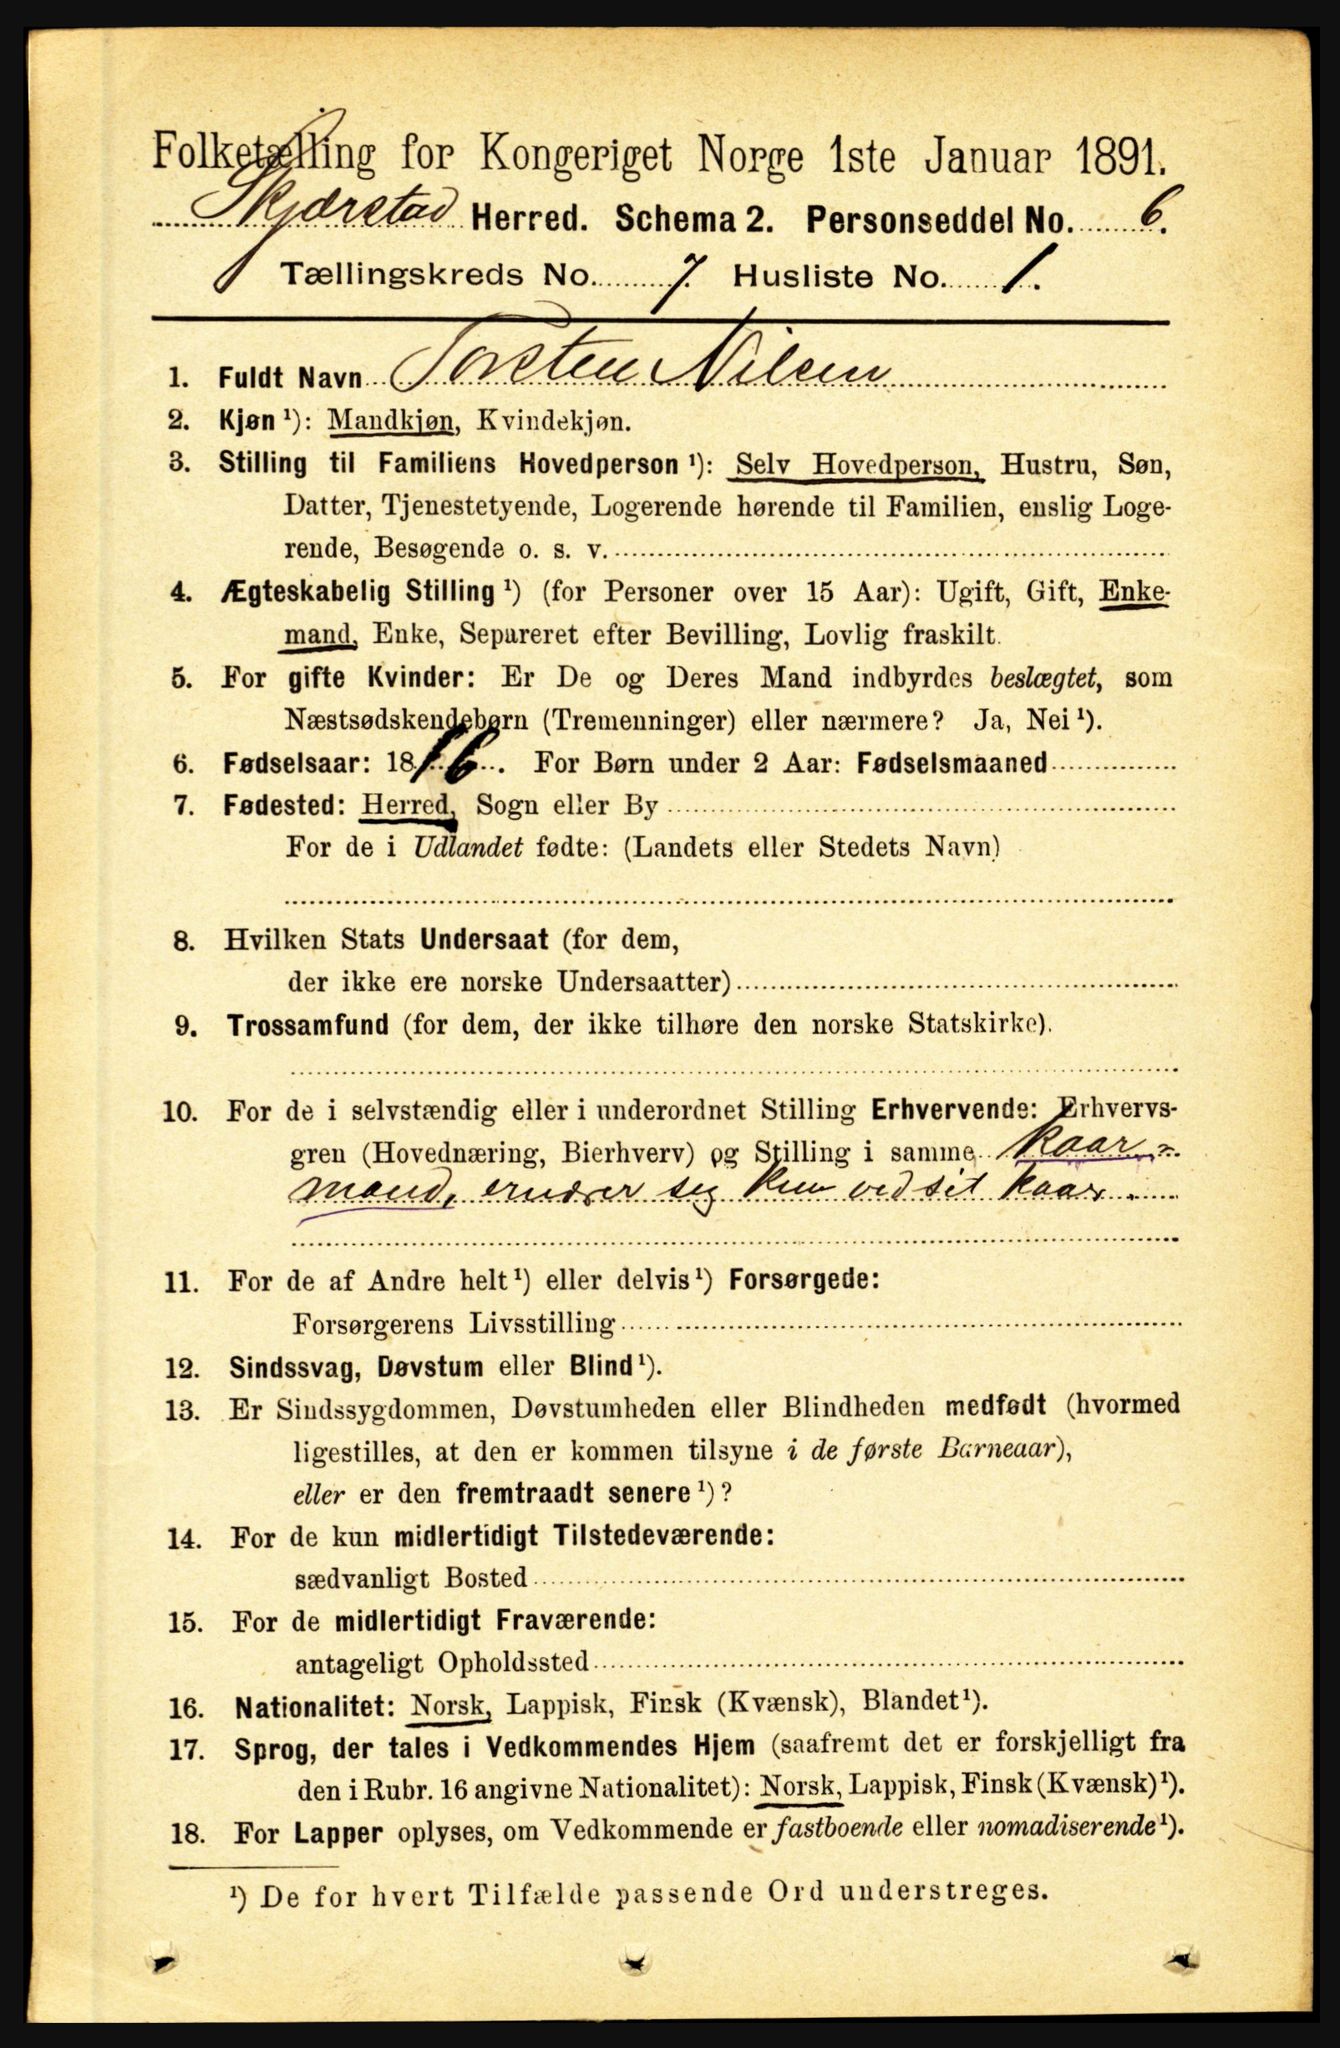 Folketælling for Kongeriget Norge 1ste Januar 1891.
Skjerstad Herred. Schema 2. Personseddel No. 6.
Tællingskreds No. 7. Husliste No. 1.
1. Fuldt Navn Torsten Nilsen
2. Kjøn¹): Mandkjøn, Kvindekjøn.
3. Stilling til Familiens Hovedperson¹): Selv Hovedperson, Hustru, Søn,
Datter, Tjenestetyende, Logerende hørende til Familien, enslig Loge-
rende, Besøgende o. s. v.
4. Ægteskabelig Stilling¹) (for Personer over 15 Aar): Ugift, Gift, Enke-
mand, Enke, Separeret efter Bevilling, Lovlig fraskilt.
5. For gifte Kvinder: Er De og Deres Mand indbyrdes beslægtet, som
Næstsødskendebørn (Tremenninger) eller nærmere? Ja, Nei¹).
6. Fødselsaar: 1816. For Børn under 2 Aar: Fødselsmaaned
7. Fødested: Herred, Sogn eller By
For de i Udlandet fødte: (Landets eller Stedets Navn)
8. Hvilken Stats Undersaat (for dem,
der ikke ere norske Undersaatter)
9. Trossamfund (for dem, der ikke tilhøre den norske Statskirke).
10. For de i selvstændig eller i underordnet Stilling Erhvervende: Erhvervs-
gren (Hovednæring, Bierhverv) og Stilling i samme Kaar-
mand, ernærer sig kun ved sit kaar.
11. For de af Andre helt¹) eller delvis¹) Forsørgede:
Forsørgerens Livsstilling
12. Sindssvag, Døvstum eller Blind¹).
13. Er Sindssygdommen, Døvstumheden eller Blindheden medfødt (hvormed
ligestilles, at den er kommen tilsyne i de første Barneaar),
eller er den fremtraadt senere¹)?
14. For de kun midlertidigt Tilstedeværende:
sædvanligt Bosted
15. For de midlertidigt Fraværende:
antageligt Opholdssted
16. Nationalitet: Norsk, Lappisk, Finsk (Kvænsk), Blandet¹).
17. Sprog, der tales i Vedkommendes Hjem (saafremt det er forskjelligt fra
den i Rubr. 16 angivne Nationalitet): Norsk, Lappisk, Finsk (Kvænsk)¹).
18. For Lapper oplyses, om Vedkommende er fastboende eller nomadiserende¹).
¹) De for hvert Tilfælde passende Ord understreges.